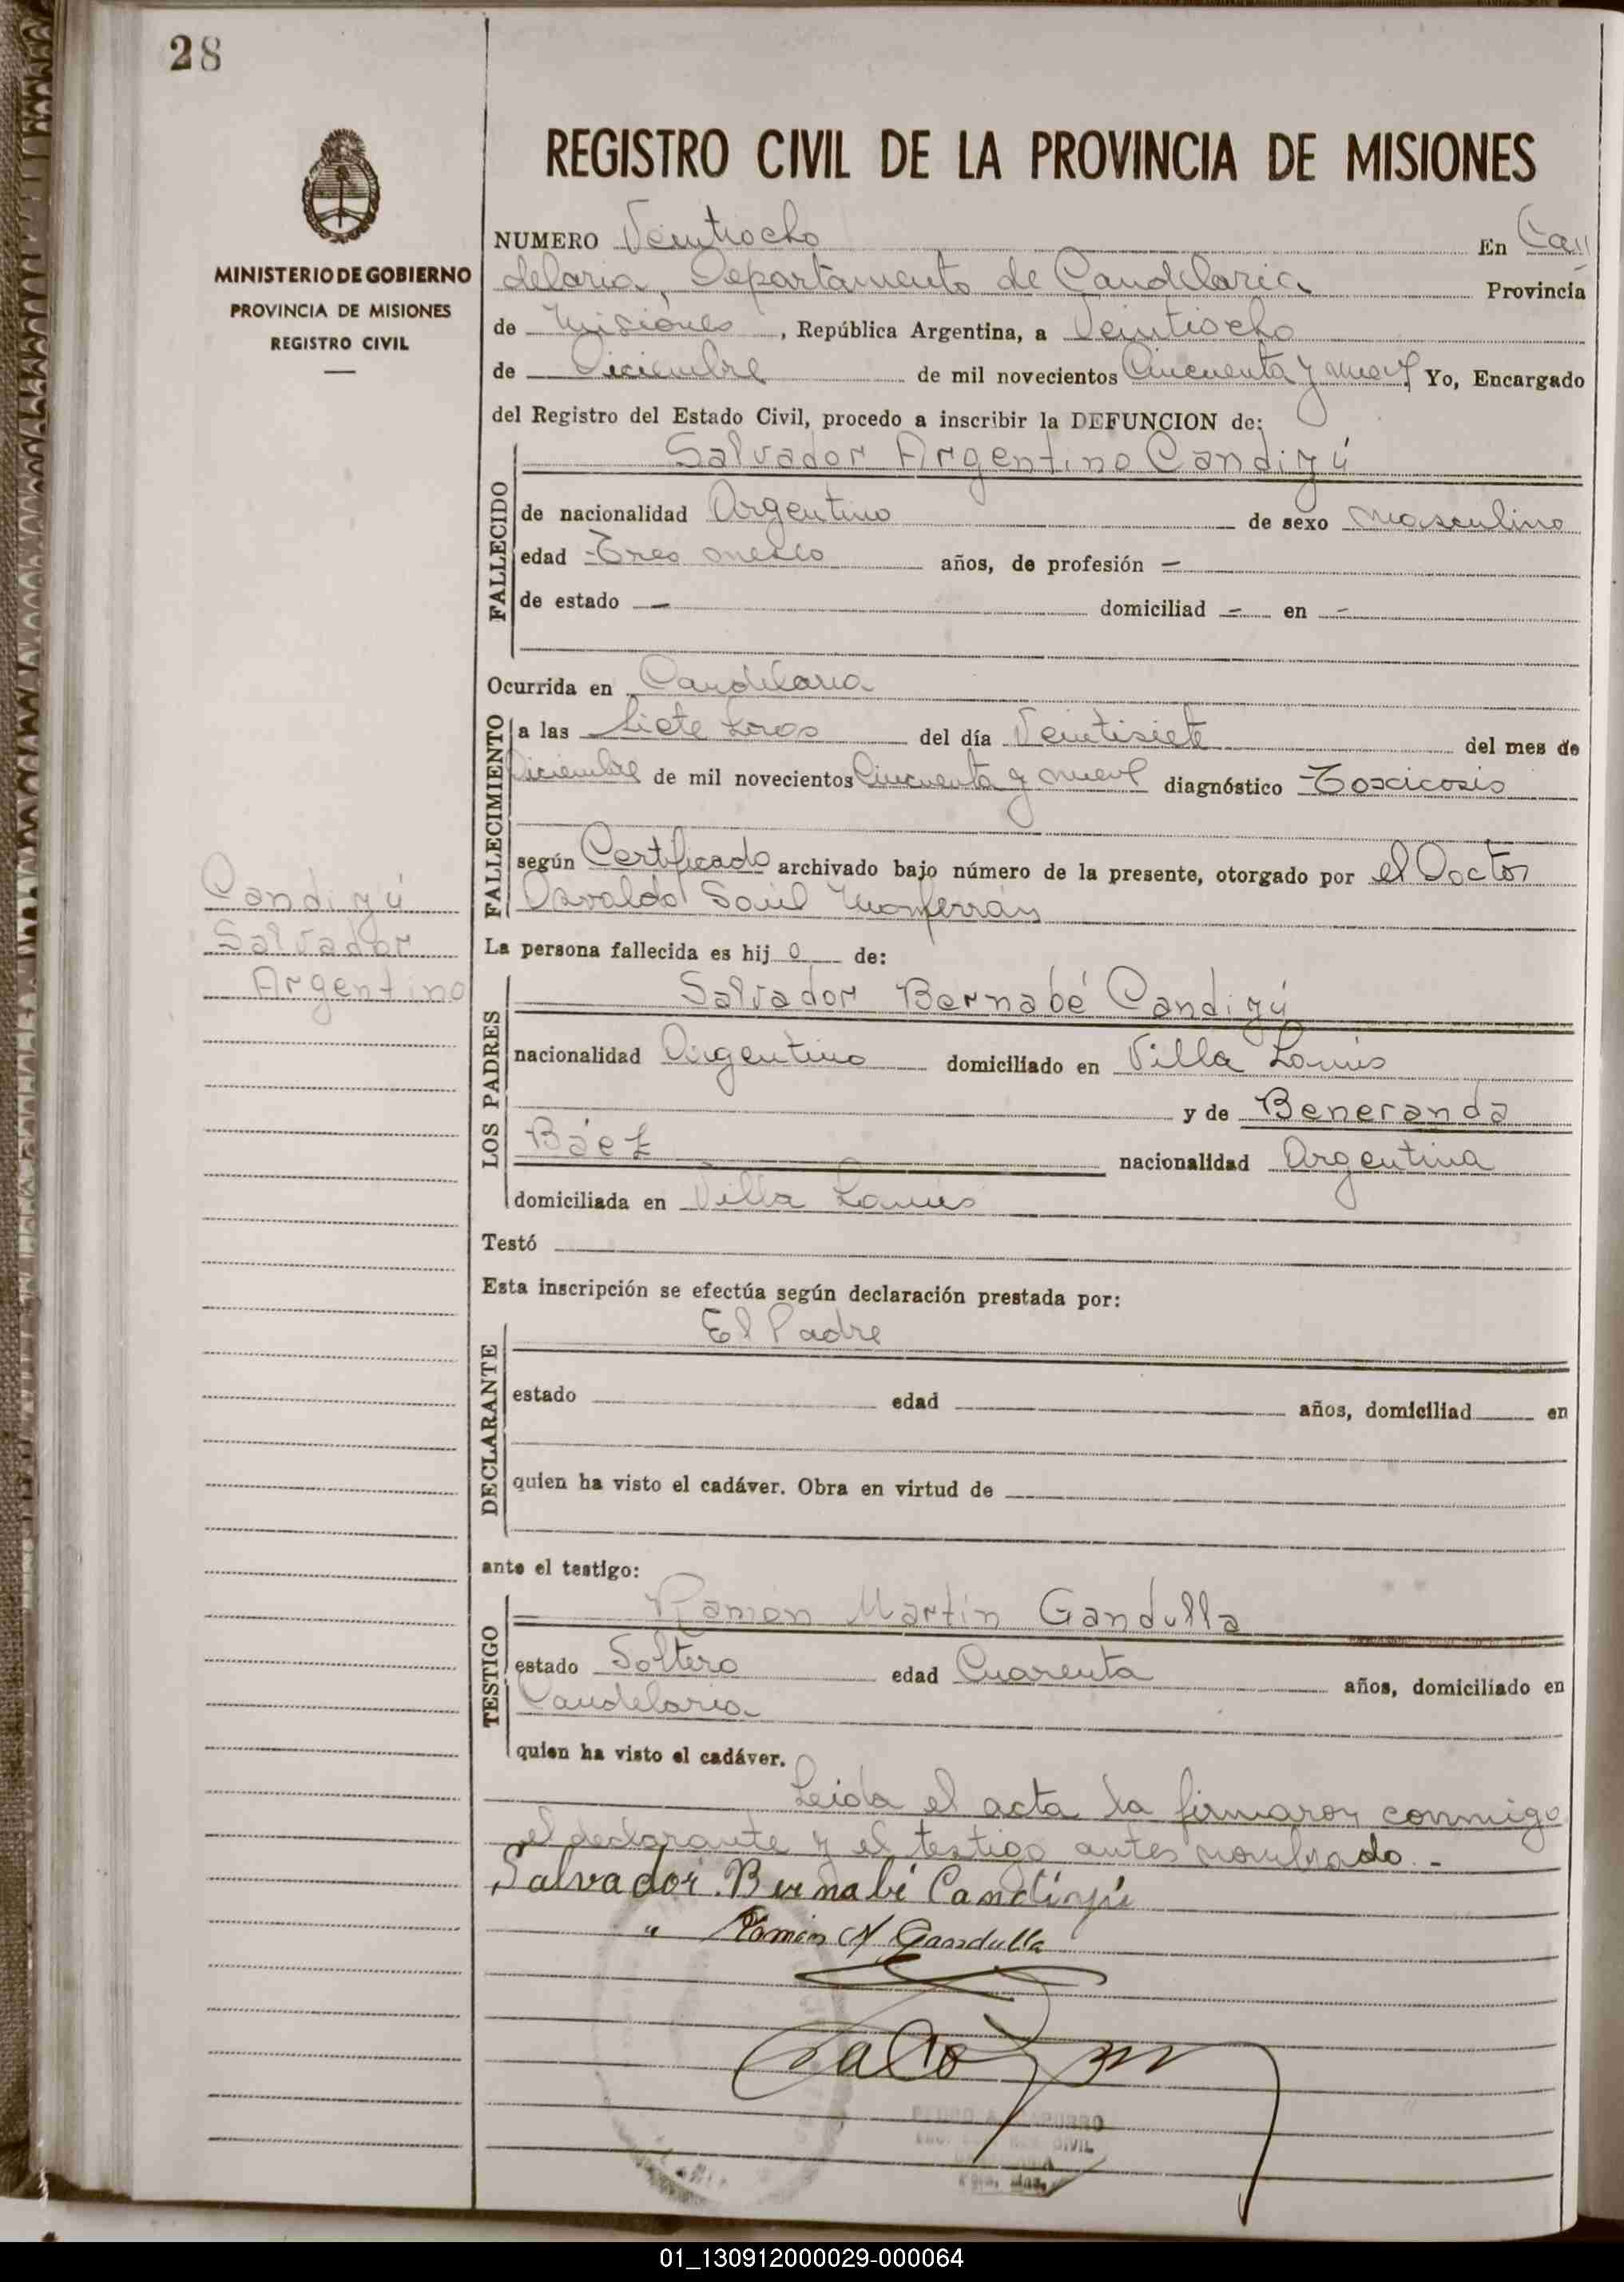 28
MINISTERIO DE GOBIERNO
PROVINCIA DE MISIONES
REGISTRO CIVIL
REGISTRO CIVIL DE LA PROVINCIA DE MISIONES
NUMERO Veintiocho En Can
delaria, Departamento de Candelaria Provincia
de Misiones, República Argentina, a Veintiocho
de Diciembre de mil novecientos Cincuenta y nueve Yo, Encargado
del Registro del Estado Civil, procedo a inscribir la DEFUNCION de:
Salvador Argentino Candiyú
FALLECIDO
de nacionalidad Argentino de sexo masculino
edad Tres meses años, de profesión —
de estado — domiciliad — en —
Ocurrida en Candelaria
FALLECIMIENTO
a las Siete horas del día Veintisiete del mes de
Diciembre de mil novecientos Cincuenta y nueve diagnóstico Toxicosis
según Certificado archivado bajo número de la presente, otorgado por el Doctor
Osvaldo Saúl Monferrán
Candiyú
Salvador
Argentino
La persona fallecida es hijo de:
LOS PADRES
Salvador Bernabé Candiyú
nacionalidad Argentino domiciliado en Villa Lanús
y de Beneranda
Báez nacionalidad Argentina
domiciliada en Villa Lanús
Testó
Esta inscripción se efectúa según declaración prestada por:
DECLARANTE
El Padre
estado edad años, domiciliad en
quien ha visto el cadáver. Obra en virtud de
ante el testigo:
TESTIGO
Ramón Martín Gandulla
estado Soltero edad Cuarenta años, domiciliado en
Candelaria
quien ha visto el cadáver.
Leida el acta la firmaron conmigo
el declarante y el testigo antes nombrado.-
Salvador Bernabé Candiyú
Ramón M Gandulla
CIVIL
01_130912000029-000064